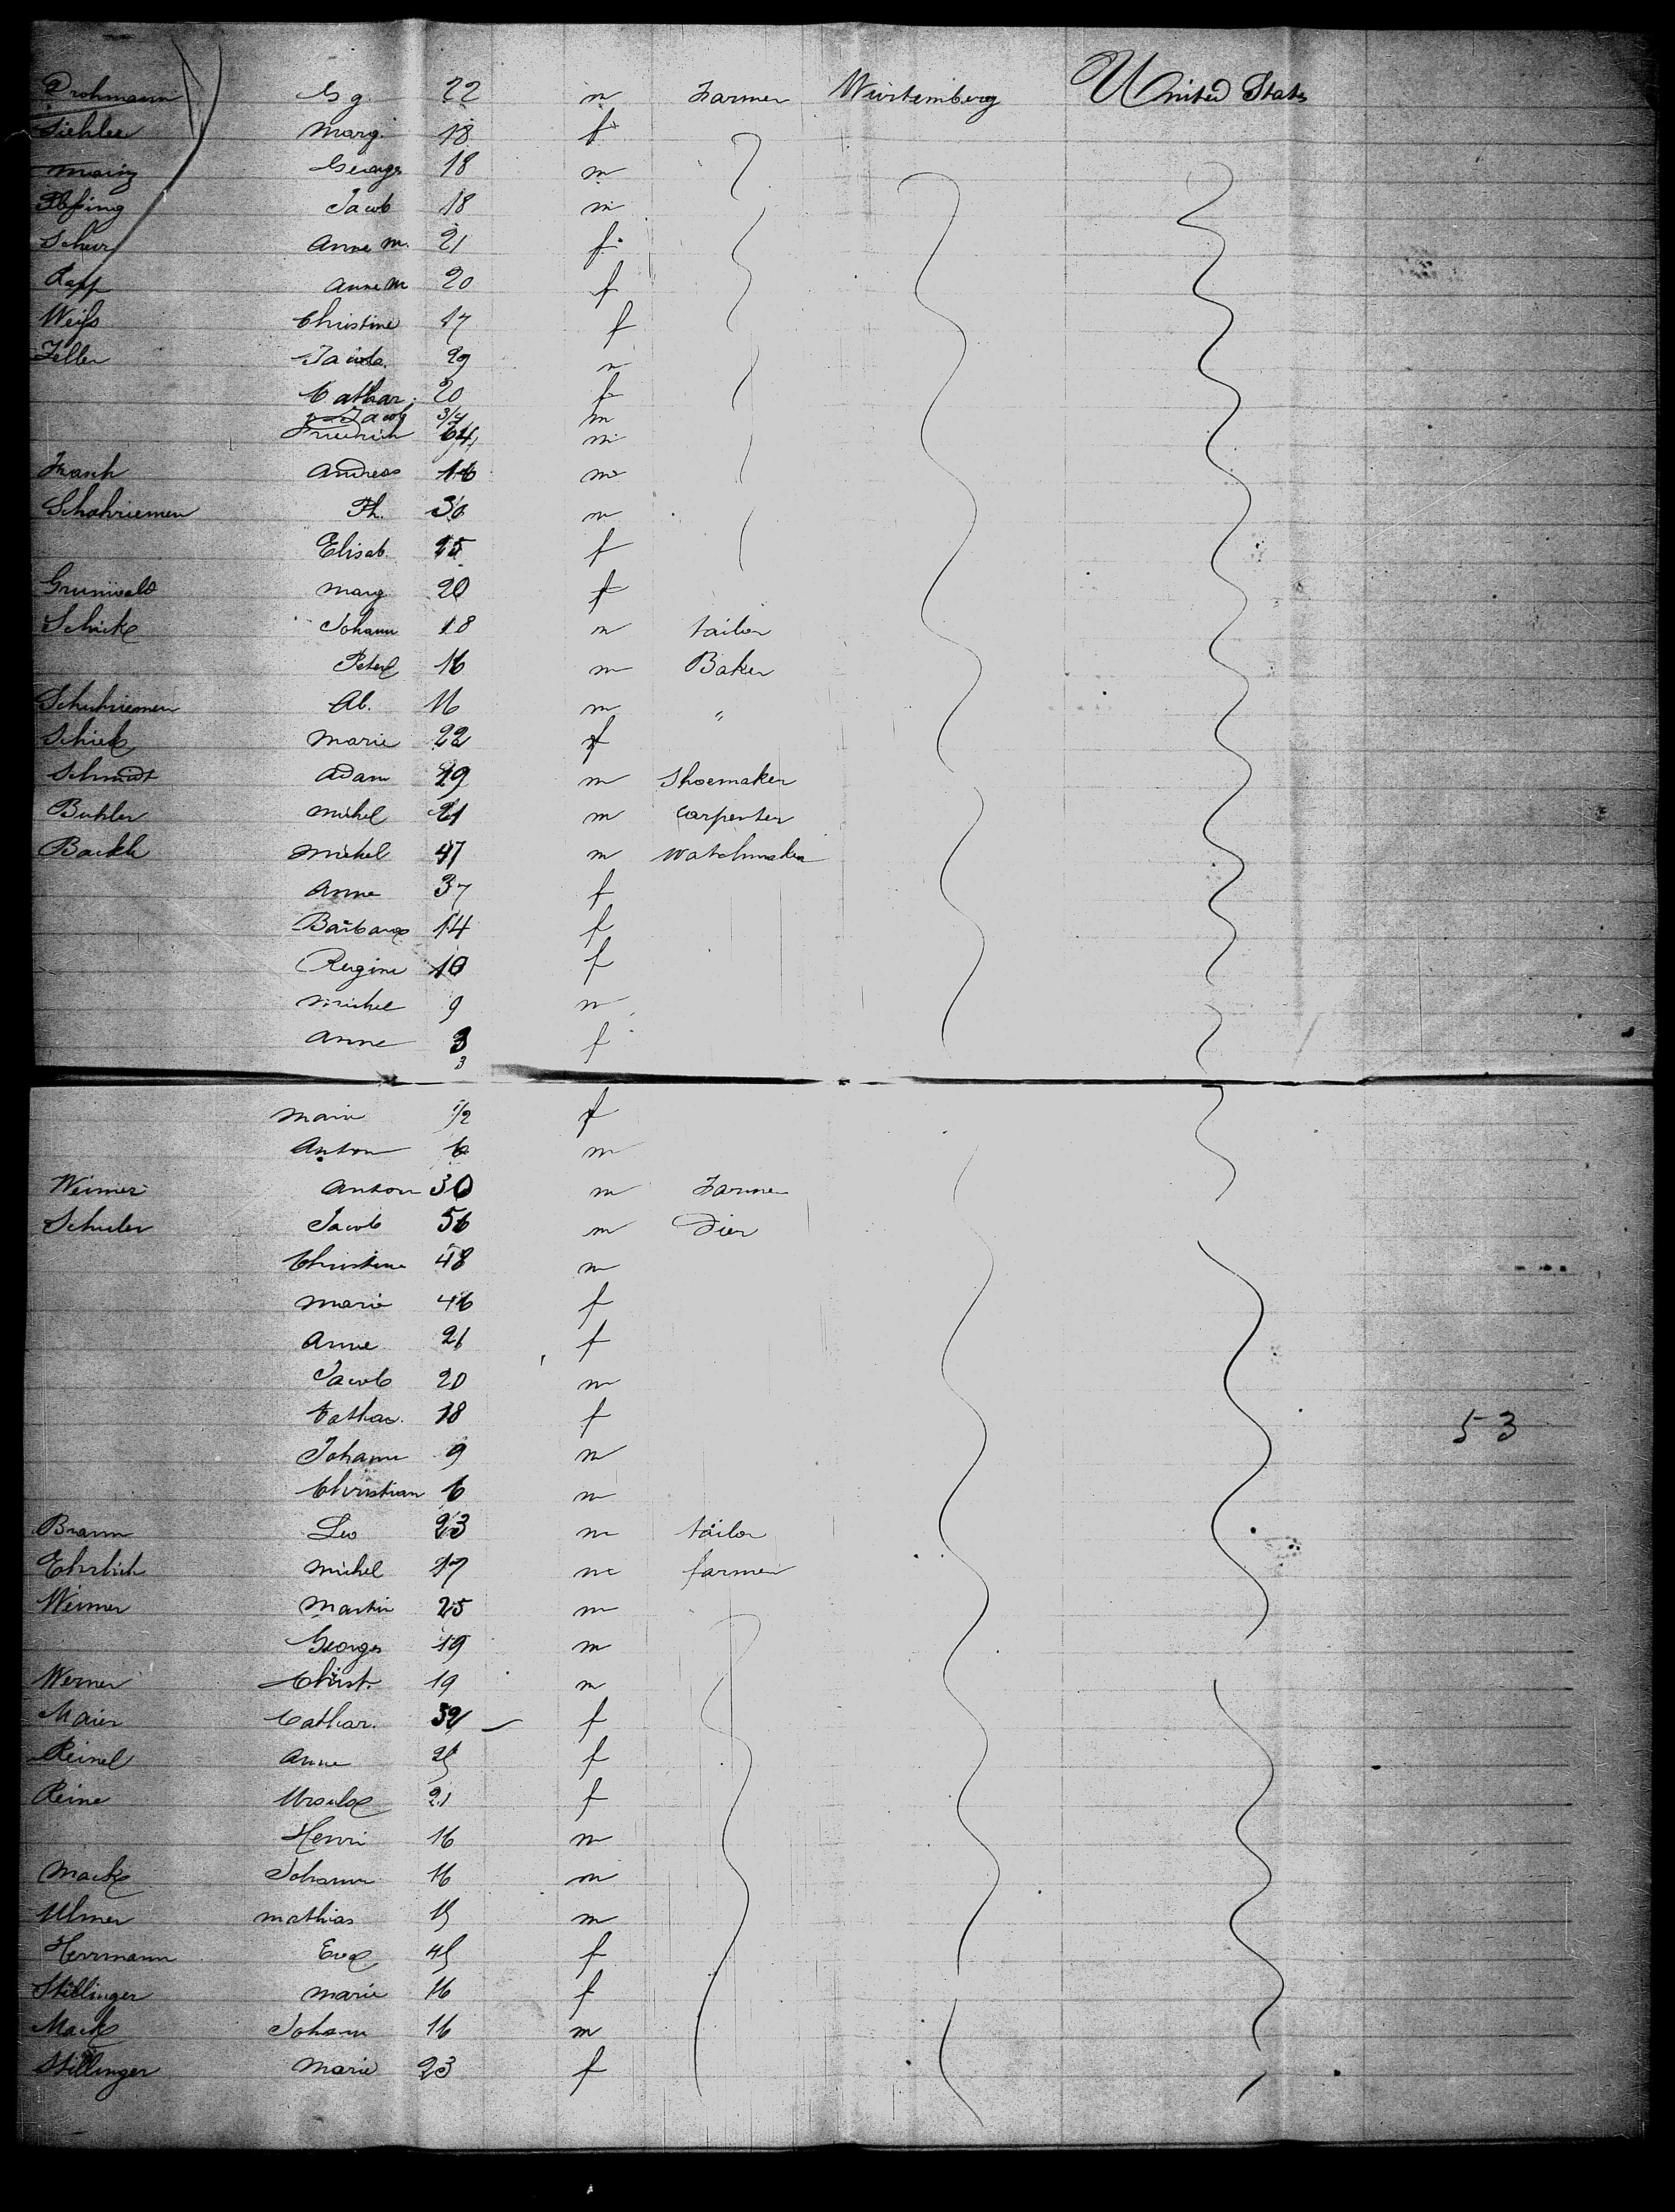 Drohmann Gg. 22 m Farmer Würtemberg United States
Marg. 18 f
Mainz George 18 m
Jacob 18 m
Scheur Anne M. 21 f
Rapp Anne M 20 f
Weiss Christine 17 f
Zeller Jacob 29 m
Cathar. 20 f
Jacob 3/4 m
Friedrich 64 m
Frank Andreas 16 m
Schahriemen Ph. 30 m
Elisab. 25 f
Grunwald Marg 20 f
Schick Johann 18 m tailor
Peter 16 m Baker
Schuhriemen Ab. 16 m "
Schick Marie 22 f
Schmidt Adam 29 m Shoemaker
Buhler Michel 21 m Carpenter
Michel 47 m Watchmaker
Anne 37 f
Barbara 14 f
Regine 10 f
Michel 9 m
Anne 3 f
3
Marie 1/2 f
Anton 6 m
Weimer Anton 30 m Farmer
Schuler Jacob 56 m Dier
Christine 48 m
Marie 46 f
Anne 21 f
Jacob 20 m
Cathar. 18 f
53
Johann 9 m
Christian 6 m
Braun Leo 23 m tailor
Ehrlich Michel 17 m farmer
Weimer Martin 25 m
Georges 19 m
Werner Christ. 19 m
Maier Cathar. 32 f
Reinel Anne 25 f
Reine Ursula 21 f
Henri 16 m
Mack Johann 16 m
Ulmer Mathias 15 m
Herrmann Eva 45 f
Stillinger Marie 16 f
Mack Johann 16 m
Stillinger Marie 23 f